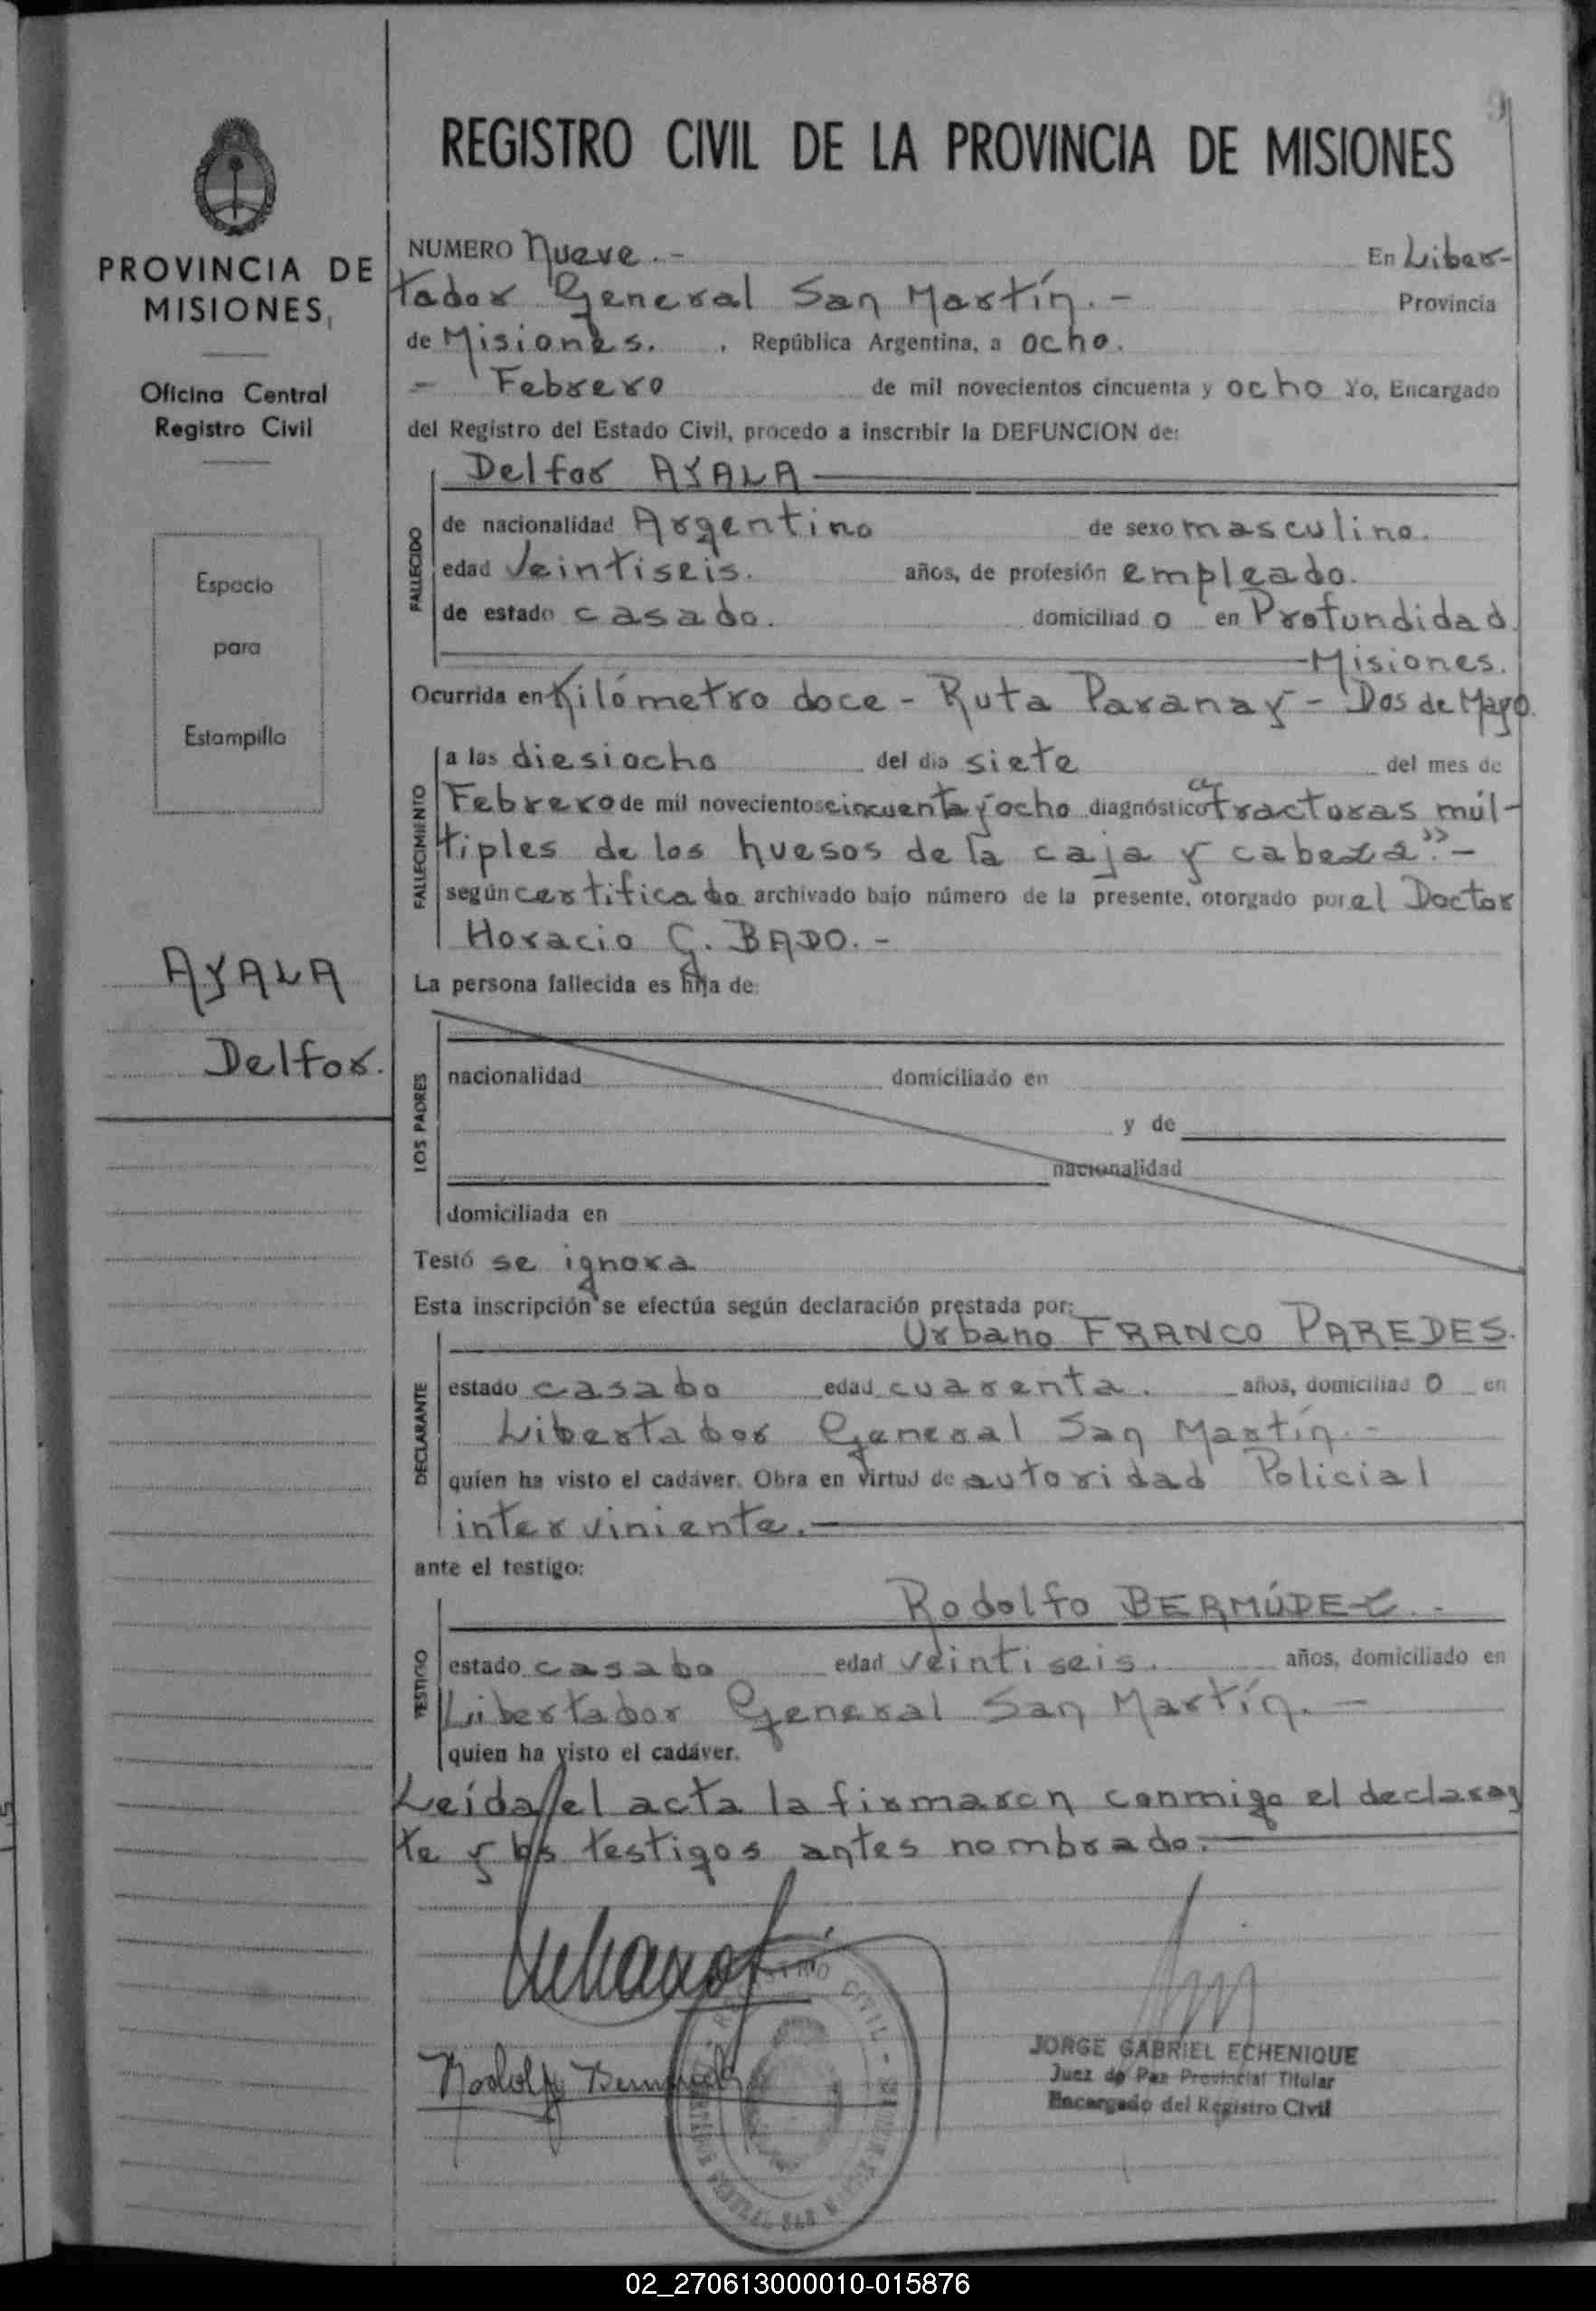 9
REGISTRO CIVIL DE LA PROVINCIA DE MISIONES
PROVINCIA DE
MISIONES
Oficina Central
Registro Civil
Espacio
para
Estampilla
AYALA
Delfor.
NUMERO Nueve.- En Liber-
tador General San Martín.- Provincia
de Misiones. , República Argentina, a ocho.
- Febrero de mil novecientos cincuenta y ocho Yo, Encargado
del Registro del Estado Civil, procedo a inscribir la DEFUNCION de:
Delfor AYALA
FALLECIDO
de nacionalidad Argentino de sexo masculino.
edad Veintiseis. años, de profesión empleado.
de estado casado. domiciliad o en Profundidad.
Misiones.
Ocurrida en Kilómetro doce - Ruta Paranay - Dos de Mayo.
FALLECIMIENTO
a las diesiocho del dia siete del mes de
Febrero de mil novecientos cincuenta y ocho diagnóstico "fractoras múl-
tiples de los huesos de la caja y cabeza".-
según certificado archivado bajo número de la presente, otorgado por el Doctor
Horacio G. BADO.-
La persona fallecida es hija de:
LOS PADRES
nacionalidad domiciliado en
y de
nacionalidad
domiciliada en
Testó se ignora
Esta inscripción se efectúa según declaración prestada por:
Urbano FRANCO PAREDES.
DECLARANTE
estado casado edad cuarenta. años, domiciliad o en
Libertador General San Martín.-
quien ha visto el cadáver. Obra en virtud de autoridad Policial
interviniente.
ante el testigo:
Rodolfo BERMÚDEZ.-
TESTIGO
estado casado edad veintiseis. años, domiciliado en
Libertador General San Martín.-
quien ha visto el cadáver.
Leída el acta la firmaron conmigo el declaran
te y los testigos antes nombrado.
Rodolfo Bermudez
REGISTRO CIVIL
JORGE GABRIEL ECHENIQUE
Juez de Paz Provincial Titular
Encargado del Registro Civil
02_270613000010-015876